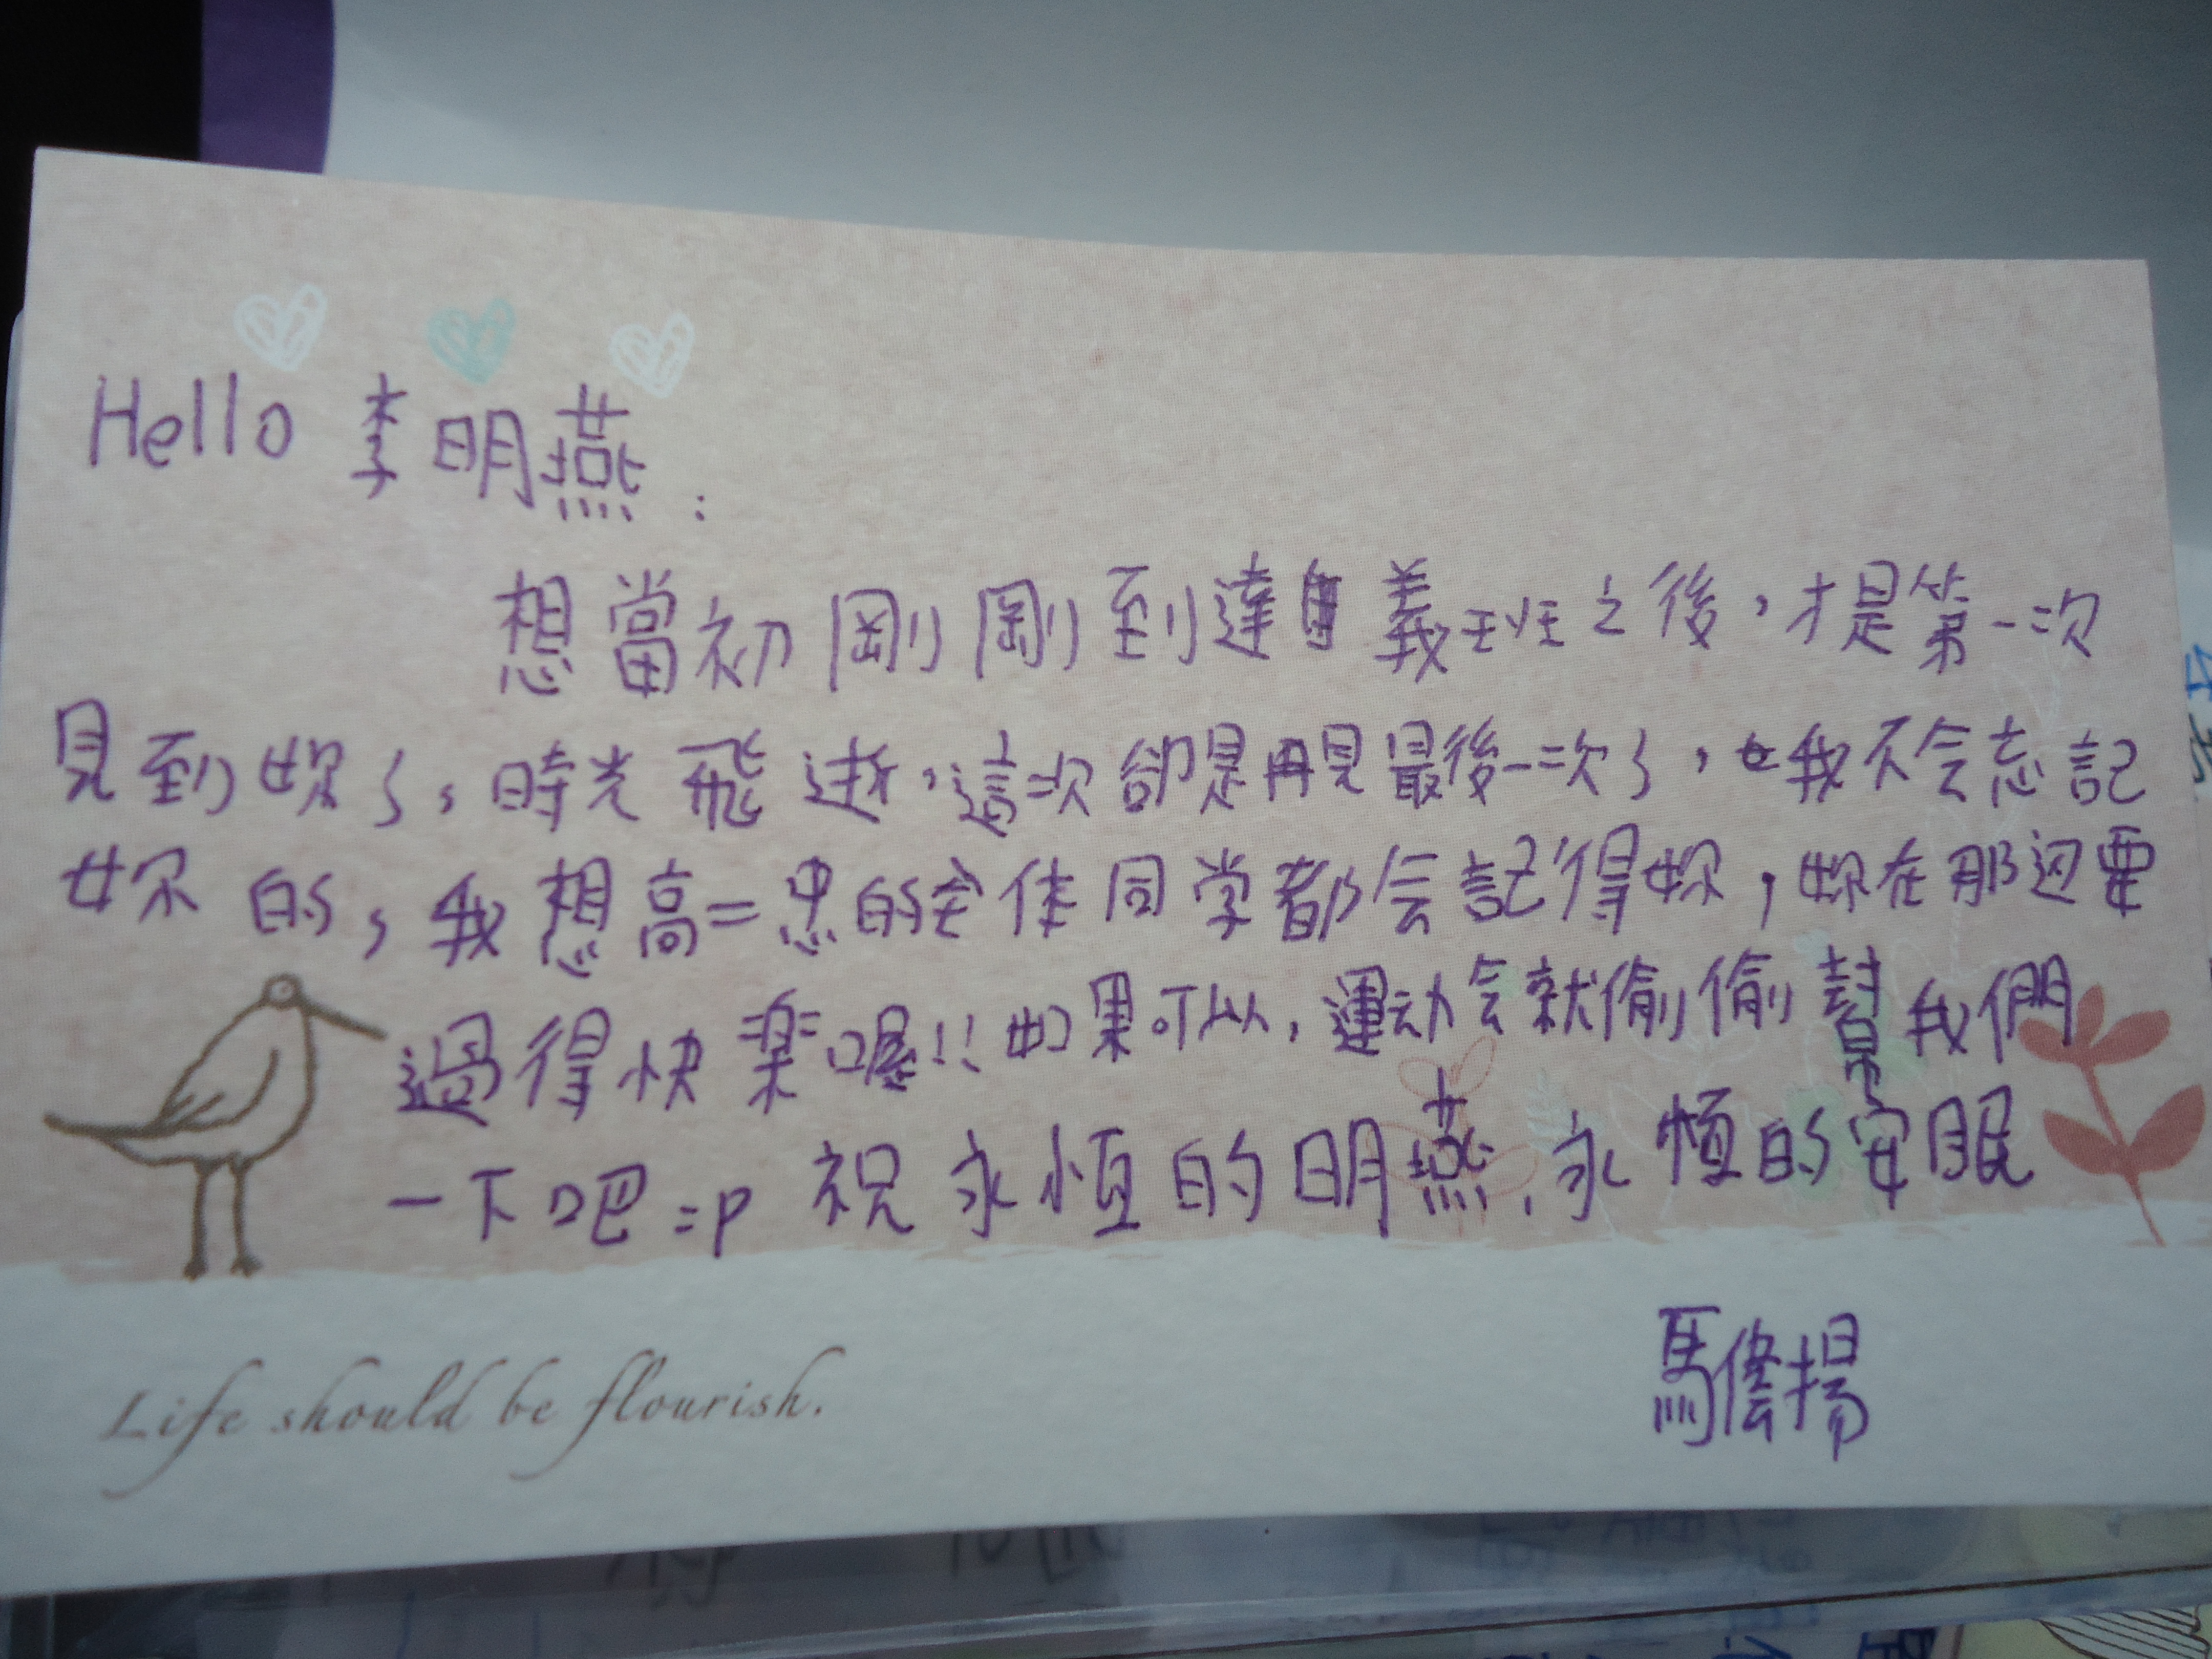 Hello 李明燕:
想當初剛剛到達自義班之後，才是第一次
見到妳了，時光飛逝，這次卻是再見最後一次了，我不会忘記
妳的，我想高二忠的全体同学都会記得妳，妳在那边要
過得快樂喔!! 如果可以，運动会就偷偷幫我們
一下吧 =p 祝永恆的明燕，永恆的安眠
馬儋揚
Life should be flourish.